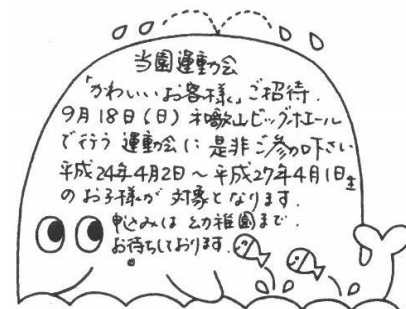 当園運動会
「かわいいお客様」ご招待.
9月18日(日)和歌山ビッグホエール
で行う運動会に是非ご参加下さい
平成24年4月2日〜平成27年4月1日生
のお子様が対象となります.
申込みは幼稚園まで.
お待ちしております.